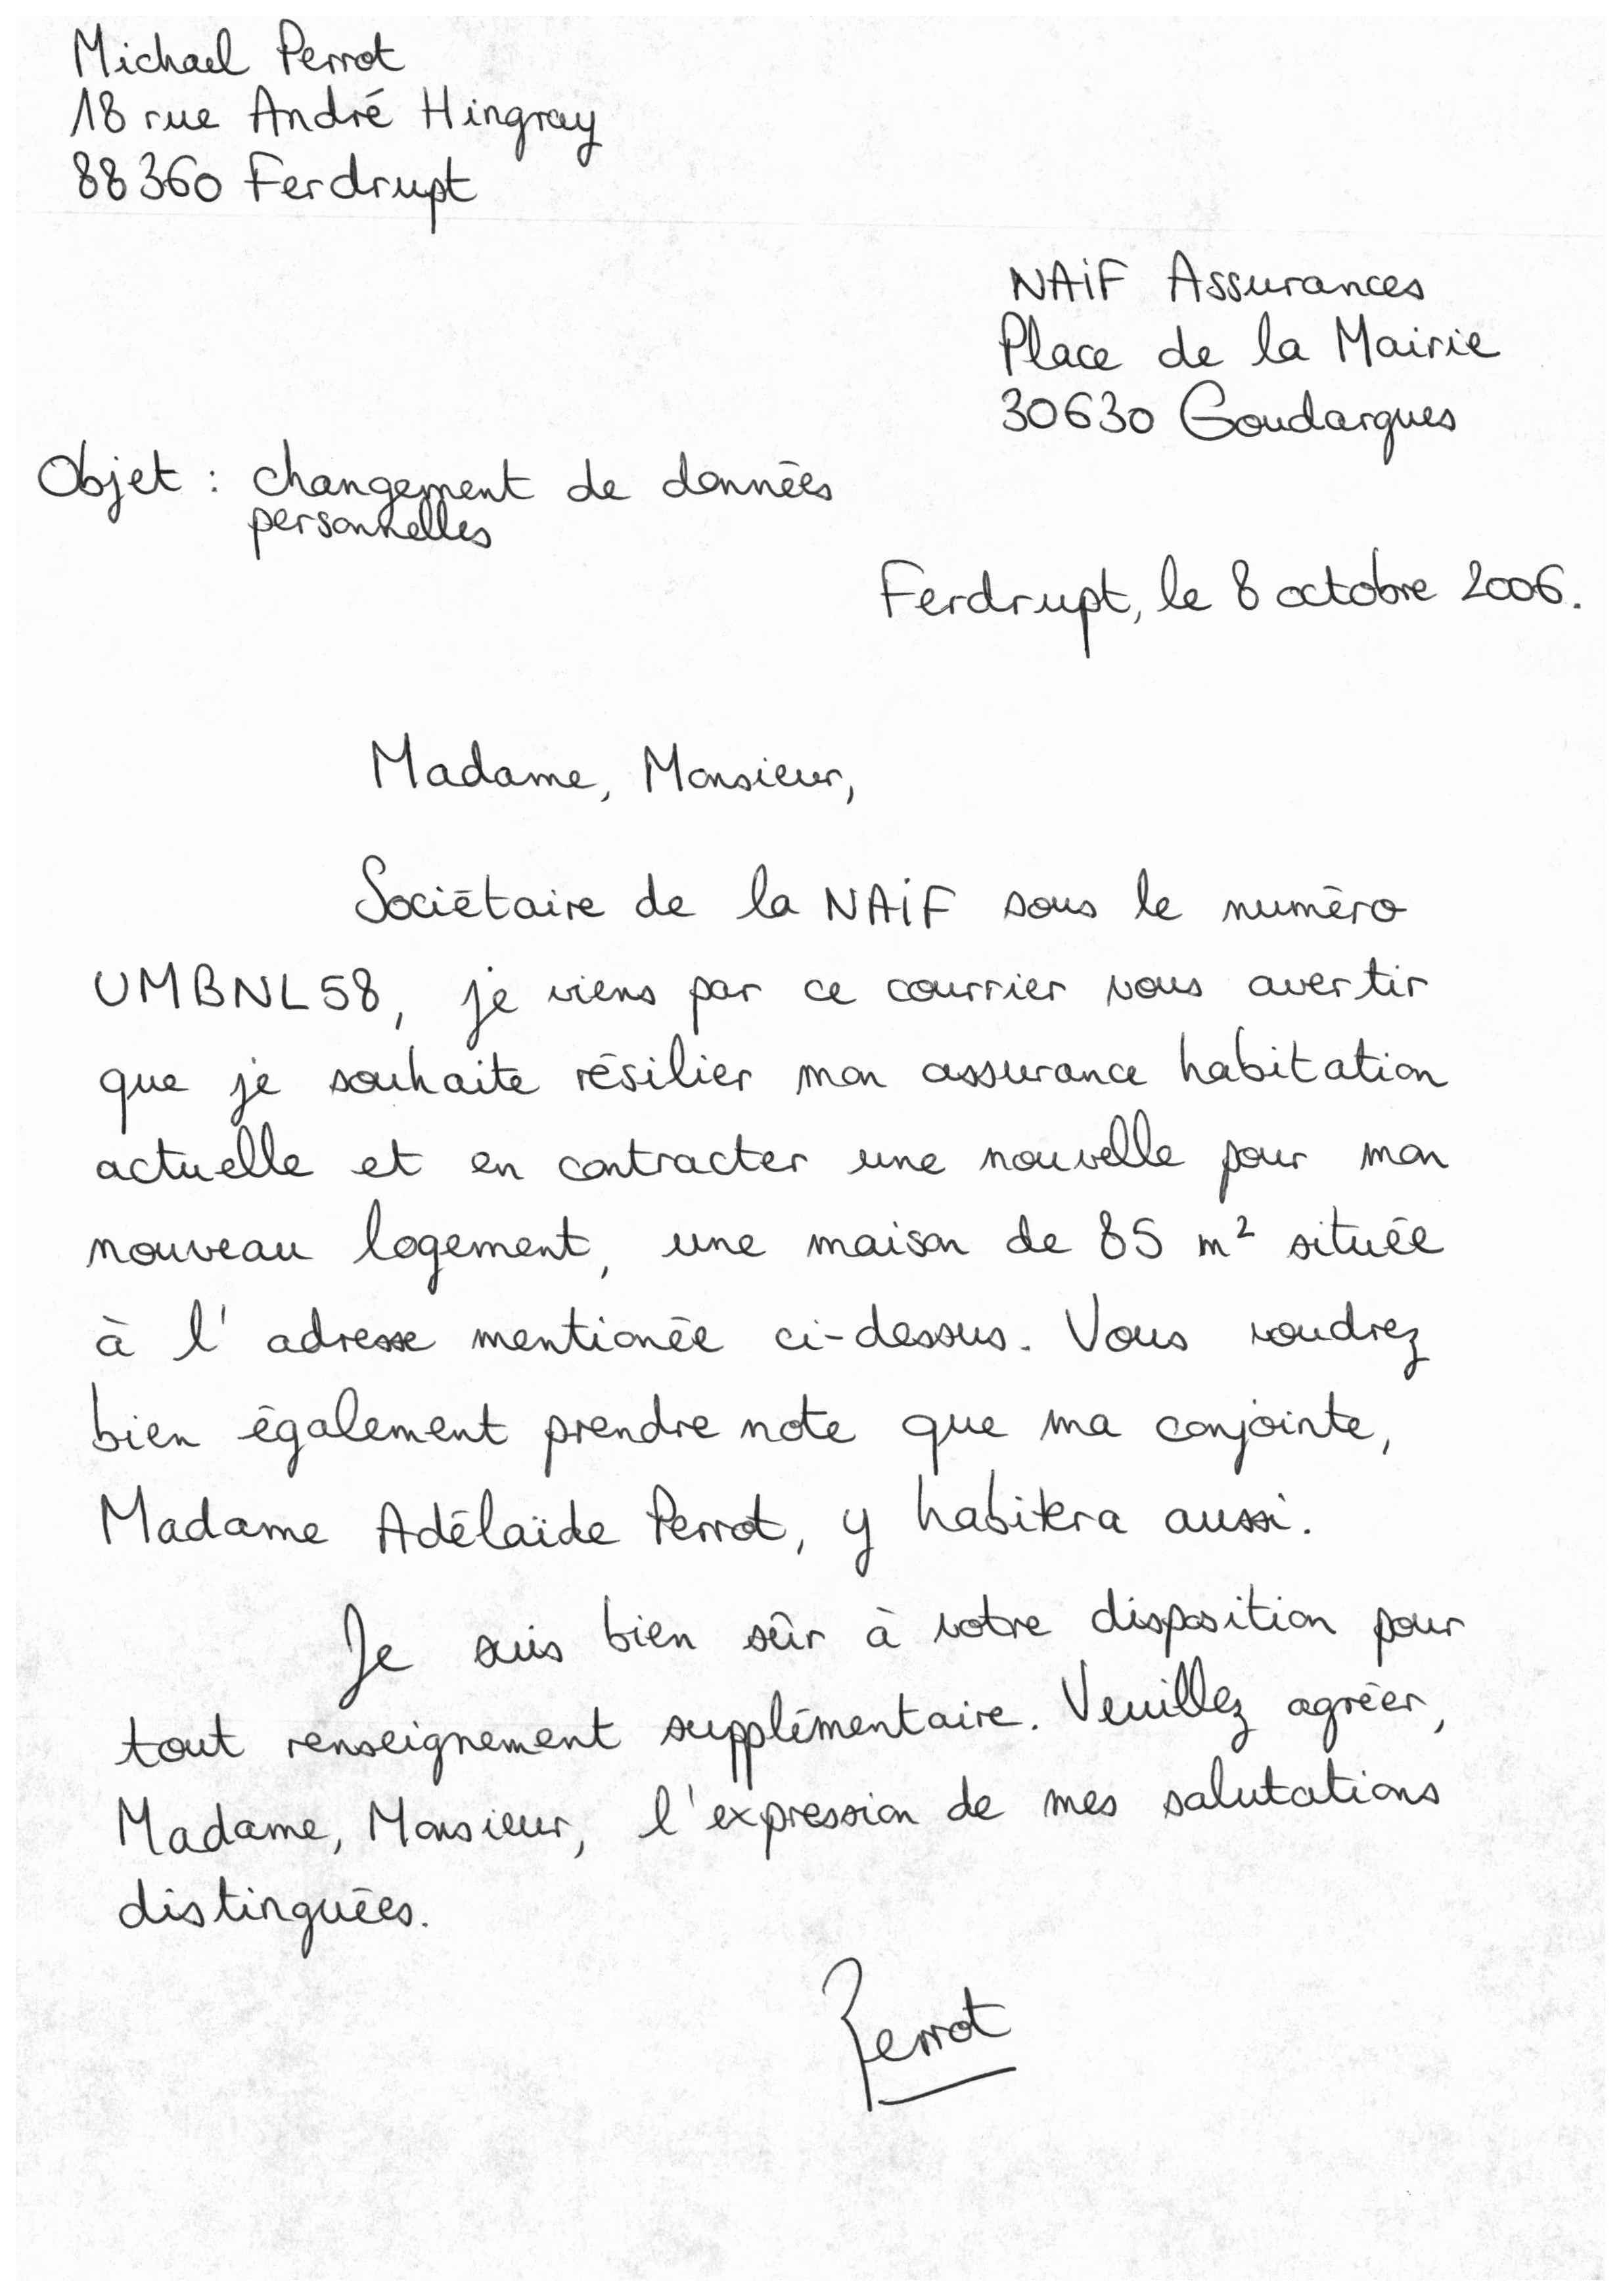 Michael Perrot
18 rue André Hingray
88360 Ferdrupt
NAiF Assurances
Place de la Mairie
30630 Goudargues
Objet : changement de données
personnelles
Ferdrupt, le 8 octobre 2006.
Madame, Monsieur,
Sociétaire de la NAiF sous le numéro
UMBNL58, je viens par ce courrier vous avertir
que je souhaite résilier mon assurance habitation
actuelle et en contracter une nouvelle pour mon
nouveau logement, une maison de 85 m² située
à l' adresse mentionée ci-dessus. Vous voudrez
bien également prendre note que ma conjointe,
Madame Adélaïde Perrot, y habitera aussi.
Je suis bien sûr à votre disposition pour
tout renseignement supplémentaire. Veuillez agréer,
Madame, Monsieur, l'expression de mes salutations
distinguées.
Perrot